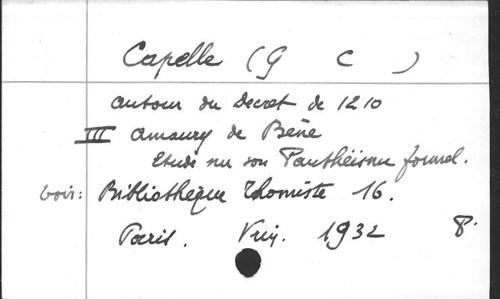 Capelle (G C )
autour du Decret de 1210
III Amaury de Bène
Etude sur son Panthéisme formel.
voir: Bibliothèque Thomiste 16.
Paris. Vrin. 1932 8°